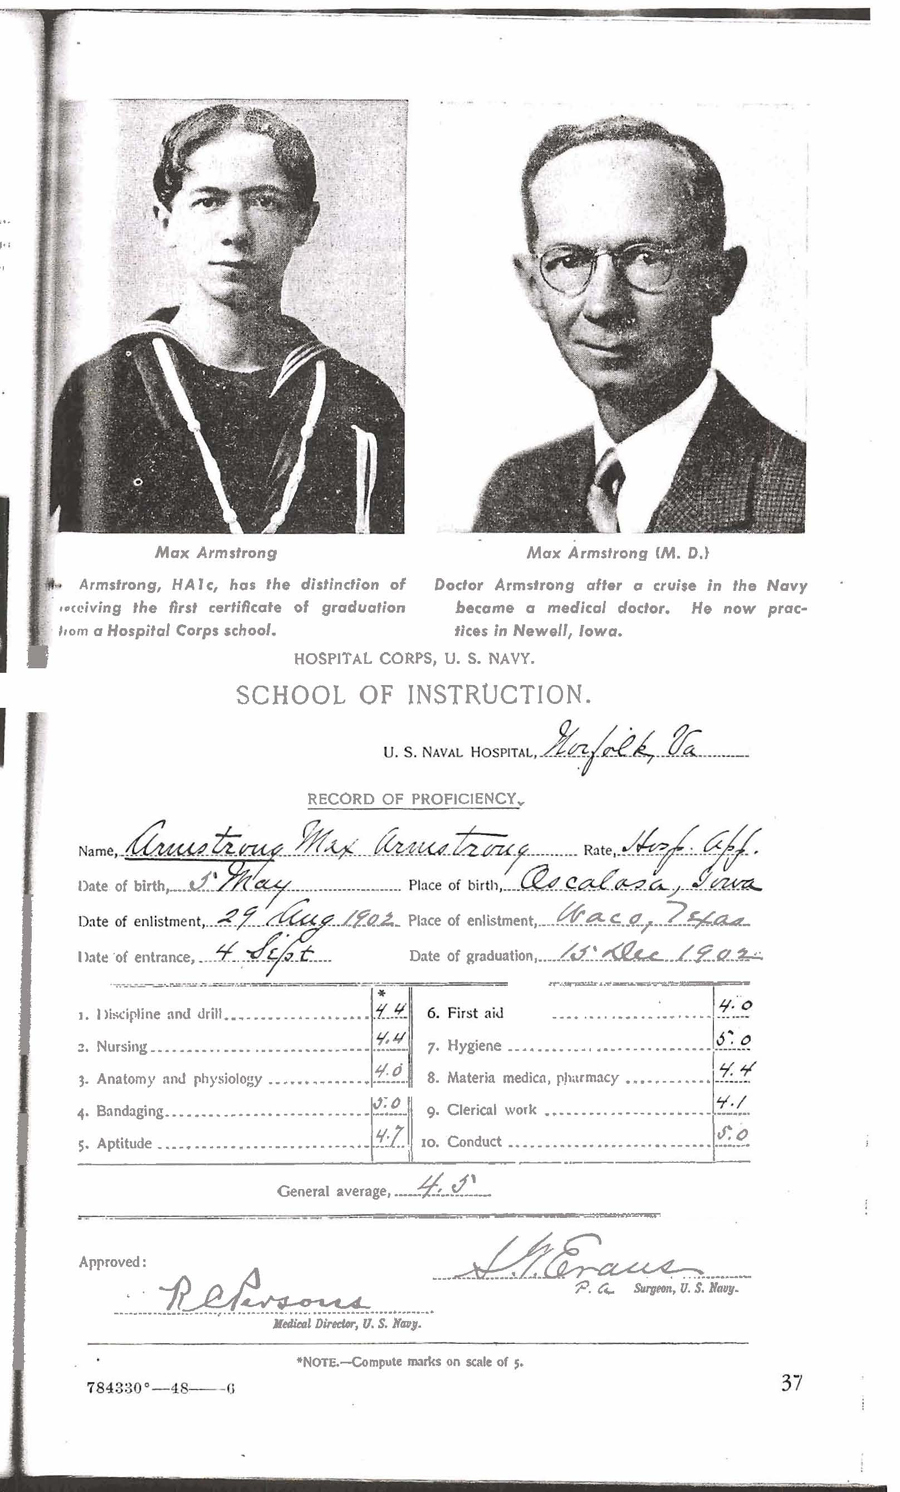 Max Armstrong
Armstrong, HA1c, has the distinction of
receiving the first certificate of graduation
from a Hospital Corps school.
Max Armstrong (M. D.)
Doctor Armstrong after a cruise in the Navy
became a medical doctor. He now prac-
tices in Newell, Iowa.
HOSPITAL CORPS, U. S. NAVY.
SCHOOL OF INSTRUCTION.
U. S. NAVAL HOSPITAL, Norfolk, Va
RECORD OF PROFICIENCY.
Name, Armstrong Max Armstrong Rate, Hosp. App.
Date of birth, 5 May Place of birth, Oscalosa, Iowa
Date of enlistment, 29 Aug 1902 Place of enlistment, Waco, Texas
Date of entrance, 4 Sept Date of graduation, 15 Dec 1902
*
1. Discipline and drill 4.4 6. First aid 4.0
2. Nursing 4.4 7. Hygiene 5.0
3. Anatomy and physiology 4.0 8. Materia medica, pharmacy 4.4
4. Bandaging 5.0 9. Clerical work 4.1
5. Aptitude 4.7 10. Conduct 5.0
General average, 4.5
Approved: S. W. Evans
P. A. Surgeon, U. S. Navy.
R C Persons
Medical Director, U. S. Navy.
*NOTE.—Compute marks on scale of 5.
784330°—48——6 37